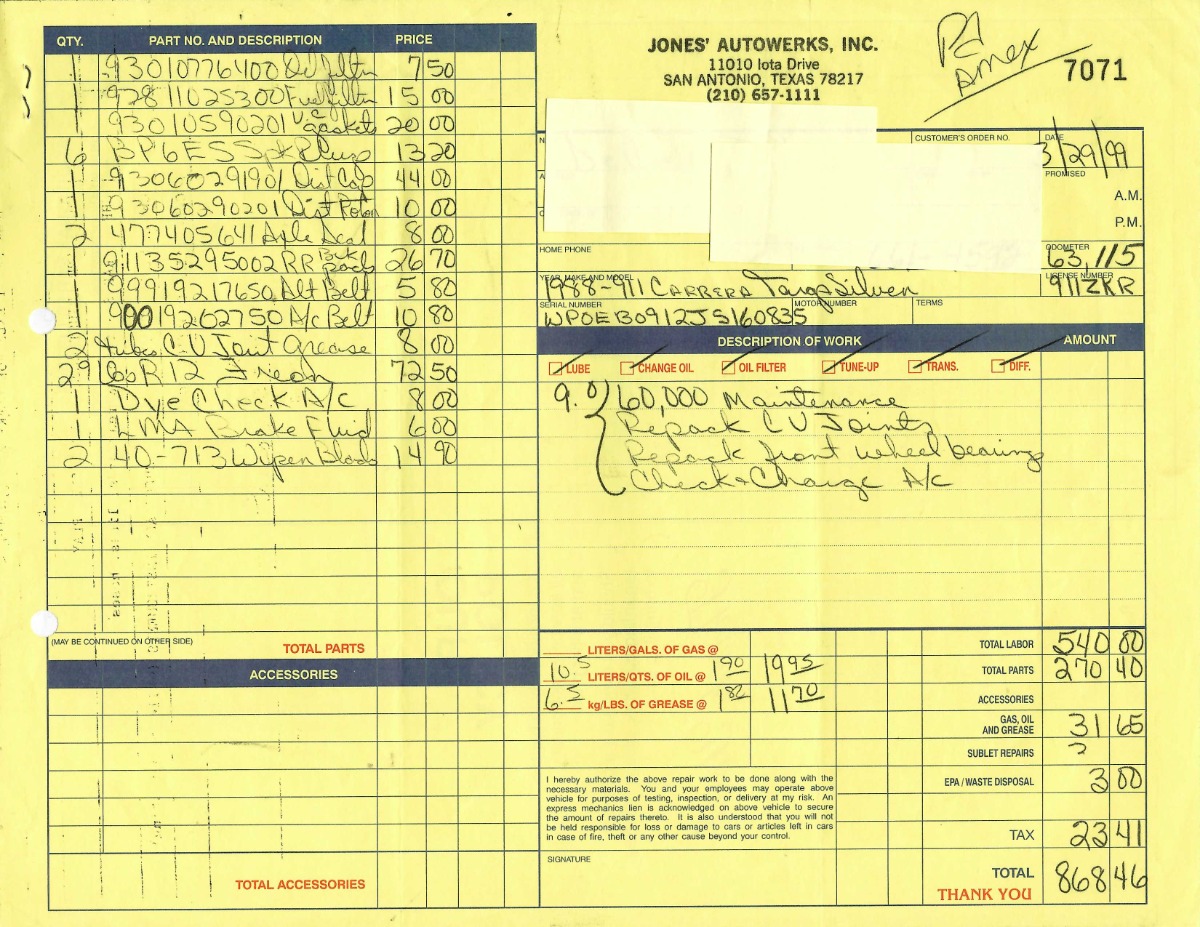 JONES' AUTOWERKS, INC.
11010 Iota Drive
SAN ANTONIO, TEXAS 78217
(210) 657-1111
Pd Amex
7071
QTY. PART NO. AND DESCRIPTION PRICE
1 93010776400 Oil filter 7 50
1 92811025300 Fuel filter 15 00
1 93010590201 V.C. gaskets 20 00
6 BP6ES Spk Plugs 13 20
1 93060291901 Dist Cap 44 00
1 93060290201 Dist Rotor 10 00
2 477405641 Axle Seal 8 00
1 91135295002 RR Bck Pads 26 70
1 99919217650 Alt Belt 5 80
1 90019262750 A/c Belt 10 80
2 tubes C.V Joint Grease 8 00
29 oz R12 Freon 72 50
1 Dye Check A/c 8 00
1 LMA Brake Fluid 6 00
2 40-713 Wiper Blads 14 90
(MAY BE CONTINUED ON OTHER SIDE)
TOTAL PARTS
ACCESSORIES
TOTAL ACCESSORIES
CUSTOMER'S ORDER NO.
DATE
3/29/99
PROMISED
A.M.
P.M.
HOME PHONE
ODOMETER
63,115
YEAR, MAKE AND MODEL
1988-911 CARRERA Targa Silver
LICENSE NUMBER
911ZKR
SERIAL NUMBER
WPOEB0912JS160835
MOTOR NUMBER
TERMS
DESCRIPTION OF WORK AMOUNT
LUBE CHANGE OIL OIL FILTER TUNE-UP TRANS. DIFF.
9.0 60,000 Maintenance
Repack CV Joints
Repack front wheel bearings
Check & Charge A/c
LITERS/GALS. OF GAS @
10.5 LITERS/QTS. OF OIL @ 1 90 19 95
6.5 kg/LBS. OF GREASE @ 1 82 11 70
TOTAL LABOR 540 00
TOTAL PARTS 270 40
ACCESSORIES
GAS, OIL
AND GREASE 31 65
SUBLET REPAIRS
EPA / WASTE DISPOSAL 3 00
TAX 23 41
TOTAL 868 46
THANK YOU
I hereby authorize the above repair work to be done along with the
necessary materials. You and your employees may operate above
vehicle for purposes of testing, inspection, or delivery at my risk. An
express mechanics lien is acknowledged on above vehicle to secure
the amount of repairs thereto. It is also understood that you will not
be held responsible for loss or damage to cars or articles left in cars
in case of fire, theft or any other cause beyond your control.
SIGNATURE